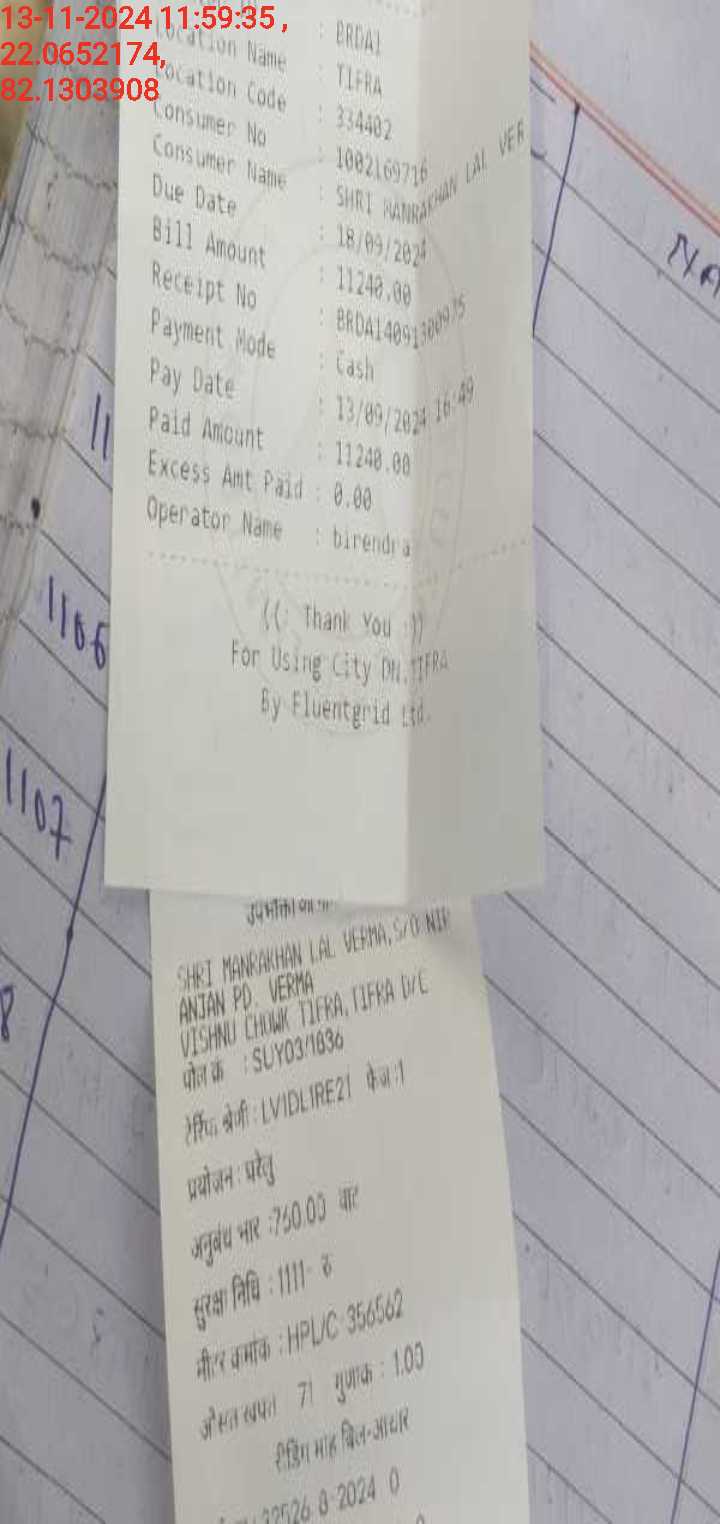 13-11-2024 11:59:35 ,
22.0652174,
82.1303908
Location Name : BRDA1
Location Code : TIFRA
: 334402
Consumer No : 1002169716
Consumer Name : SHRI MANRAKHAN LAL VER
Due Date : 18/09/2024
Bill Amount : 11240.00
Receipt No : BRDA140913009
Payment Mode : Cash
Pay Date : 13/09/2024 16:49
Paid Amount : 11240.00
Excess Amt Paid : 0.00
Operator Name : birendra
((: Thank You :))
For Using City DN,TIFRA
By Fluentgrid Ltd.
11
1106
1107
8
NA
SHRI MANRAKHAN LAL VERMA, S/O NIR
ANJAN PD. VERMA
VISHNU CHOWK TIFRA, TIFRA D/C
पोल क्र :
श्रेणी : LV1DL1RE21 फेज :1
प्रयोजन : घरेलु
अनुबंध भार :750.00 वाट
सुरक्षा निधि : 1111- रु
मीटर क्रमांक : HPL/C 356562
औसत खपत 71 गुणांक : 1.00
रीडिंग माह बिल-आधार
32526 8-2024 0